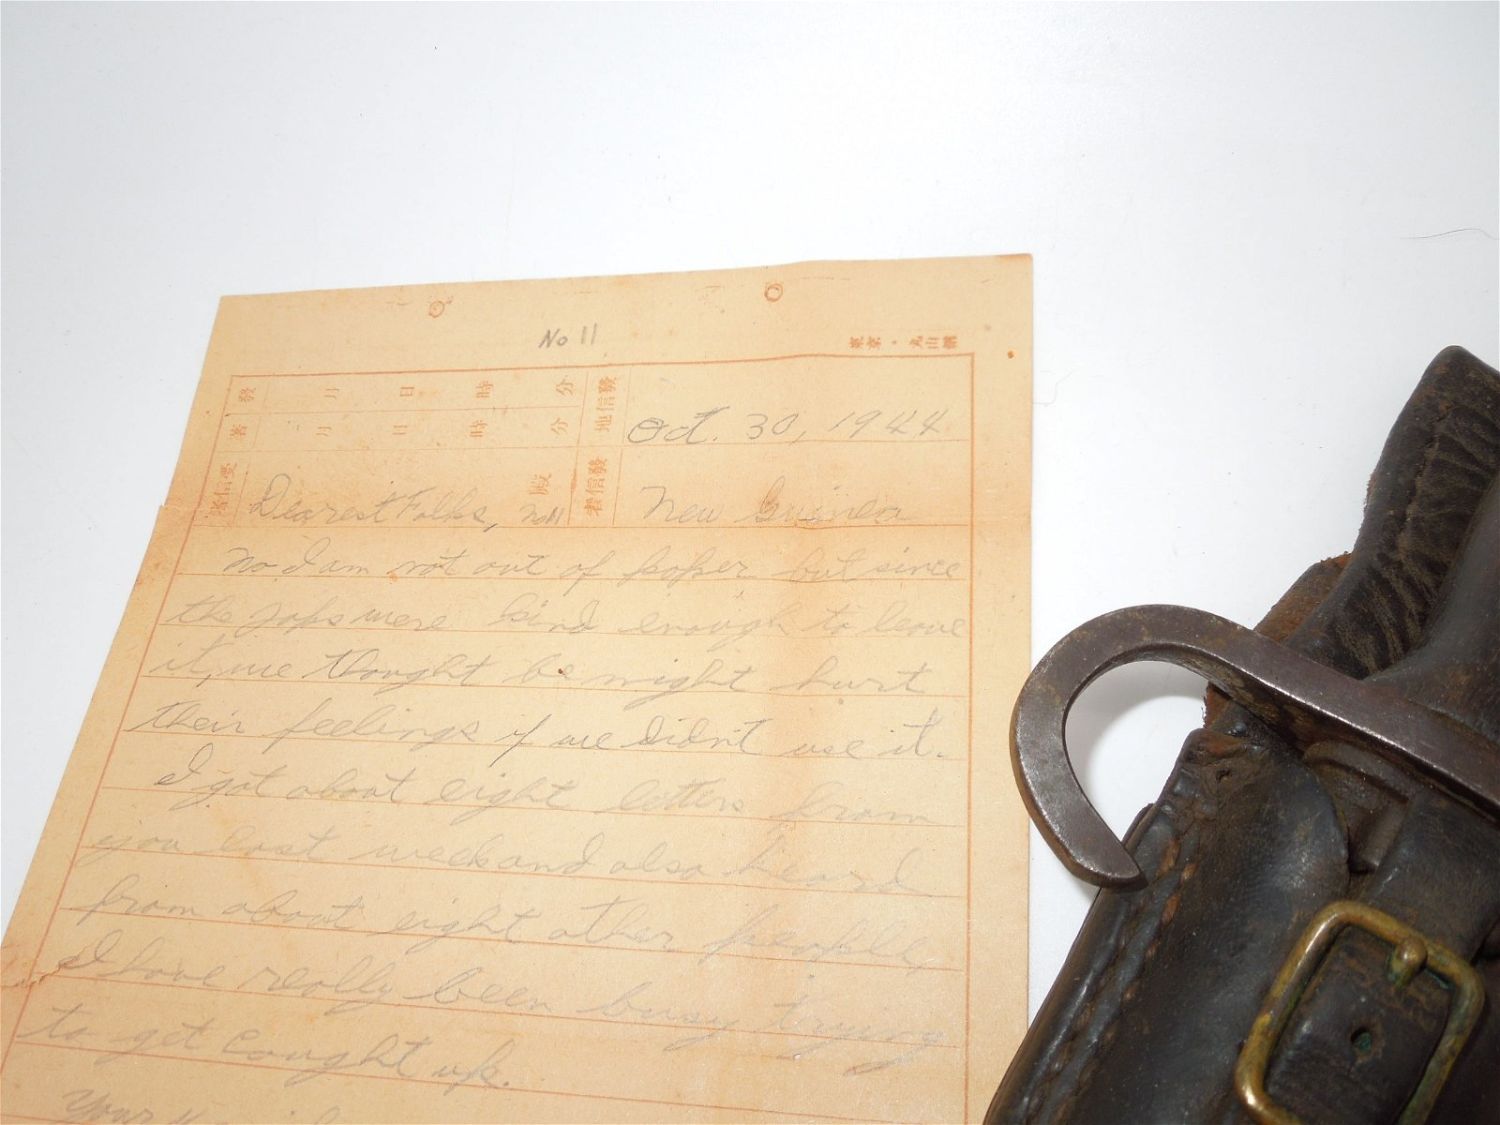 No 11
東京・丸山
發 月 日 時 分 發信地 Oct. 30, 1944
著 月 日 時 分
受信者 Dearest Folks, No 11 殿 發信者 New Guinea
No I am not out of paper but since
the Japs were kind enough to leave
it, we thought be might hurt
their feelings if we didn't use it.
I got about eight letters from
you last week and also heard
from about eight other people,
I have really been busy trying
to get caught up.
Your